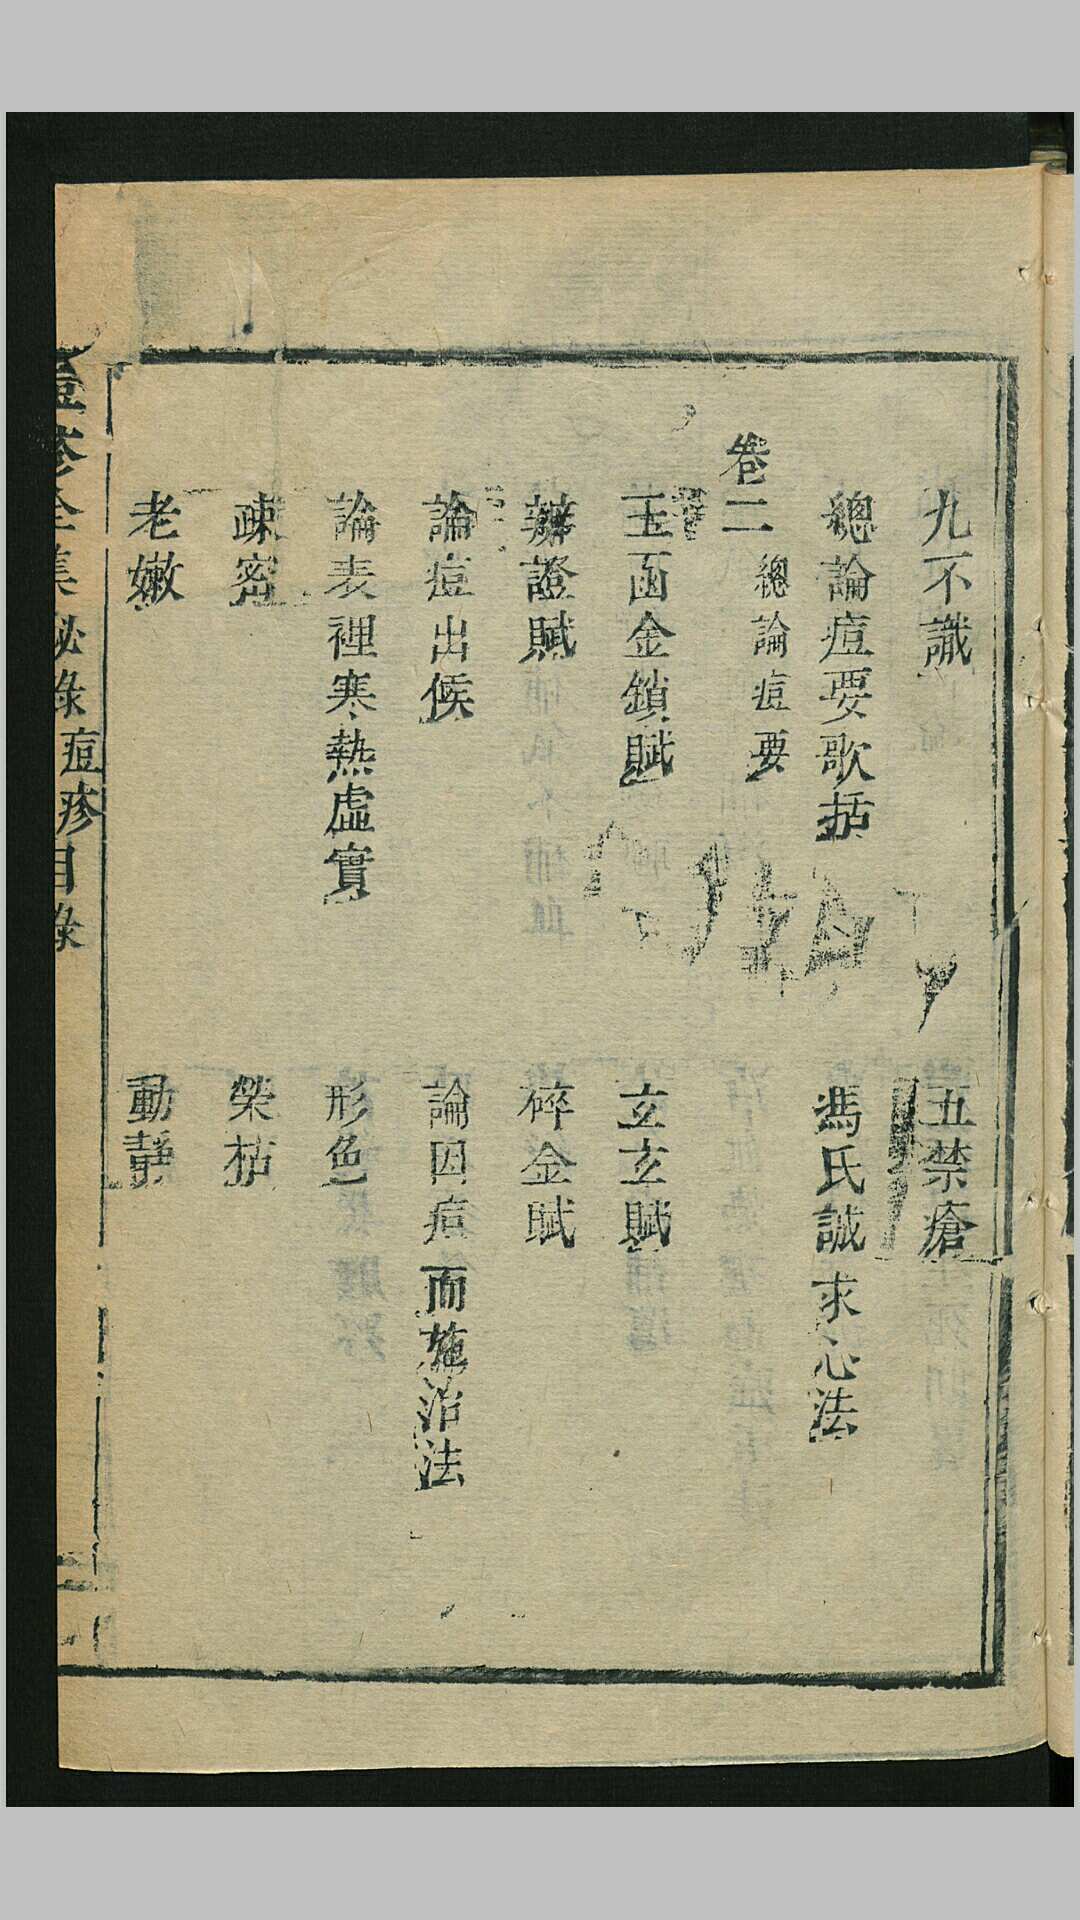 九不識　五禁瘡
總論痘要歌括　馮氏誠求心法
卷二　總論痘要
玉函金鎖賦　玄玄賦
辨證賦　碎金賦
論痘出候　論因痘而施治法
論表裡寒熱虛實　形色
疎密　榮枯
老嫩　動靜
痘疹全集秘錄痘疹目錄　二